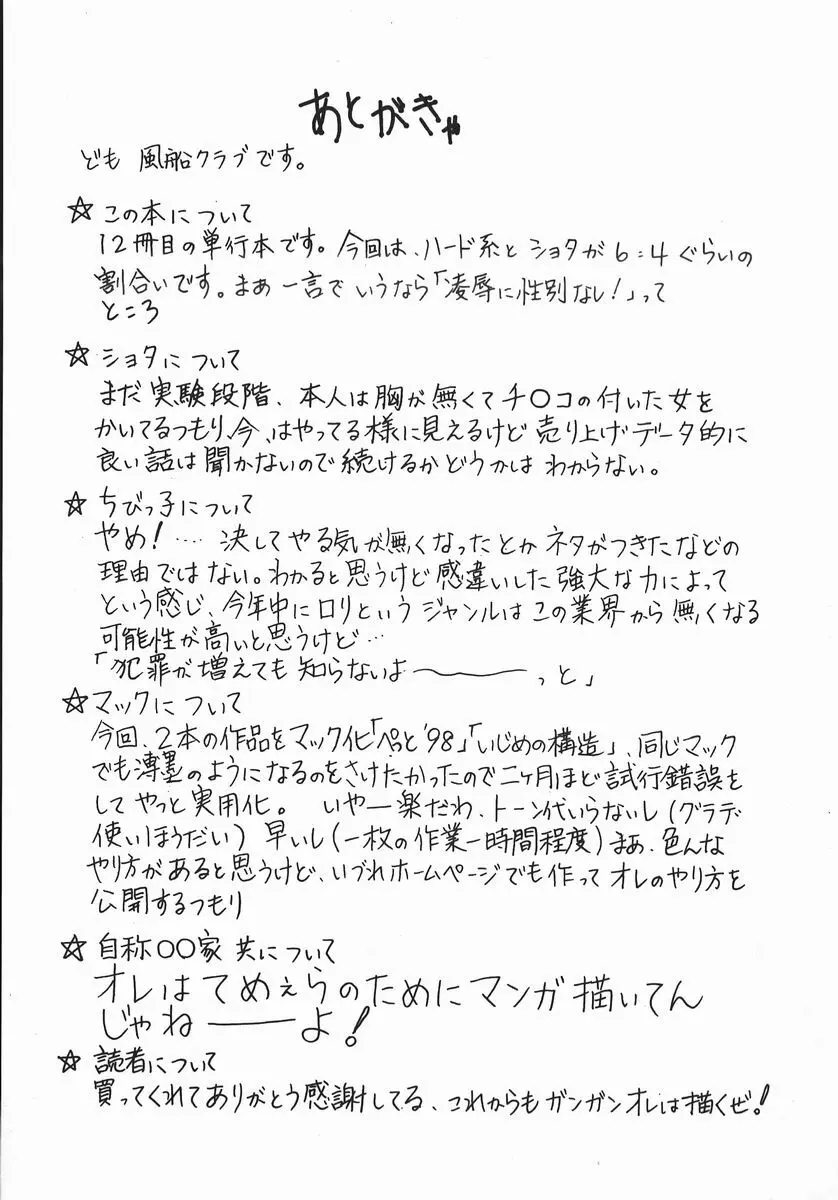 あとがきゃ
ども 風船クラブです。
☆ この本について
12冊目の単行本です。今回は、ハード系と ショタが 6:4 ぐらいの
割合いです。まあ 一言で いうなら「凌辱に性別なし!」って
ところ
☆ ショタについて
まだ 実験段階、本人は 胸が 無くて チ〇コの付いた 女を
かいてるつもり、今、はやってる様に見えるけど 売り上げデータ的に
良い話は 聞かないので続けるか どうかは わからない。
☆ ちびっ子について
やめ!‥‥ 決して やる気が無くなったとか ネタがつきたなどの
理由では ない。わかると思うけど 感違いした 強大な力によって
という感じ、今年中に ロリという ジャンルは この業界から 無くなる
可能性が高いと思うけど…
「犯罪が 増えても 知らないよ〜っと」
☆ マックについて
今回、2本の作品をマック化「ぺっと'98」「いじめの構造」、同じマック
でも薄墨のようになるのをさけたかったので二ヶ月ほど 試行錯誤を
して やっと 実用化。 いやー楽だわ、トーン代いらないし(グラデ
使いほうだい) 早いし(一枚の作業一時間程度)まぁ、色んな
やり方があると思うけど、いづれホームページでも作って オレのやり方を
公開するつもり
☆ 自称〇〇家 共について
オレはてめぇらのためにマンガ描いてん
じゃねーよ!
☆ 読者について
買ってくれてありがとう感謝してる、これからもガンガンオレは描くぜ!